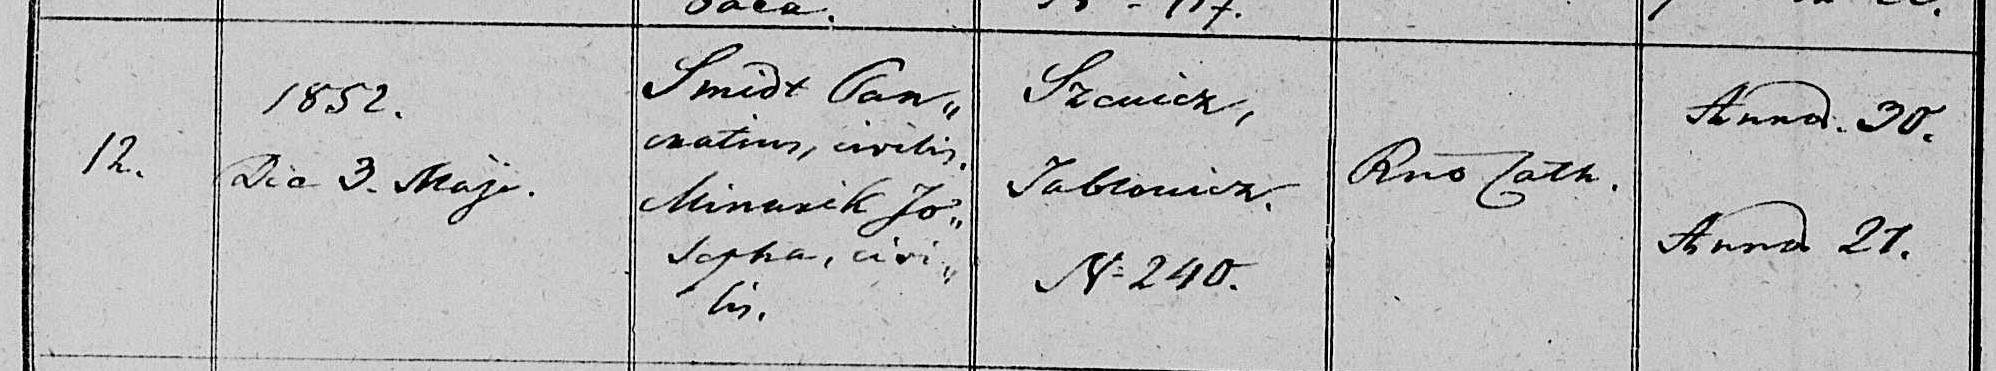 12.
1852.
Die 3. Maji.
Smidt Pan„
cratius, civilis.
Minarik Jo„
sepha, civi„
lis.
Szenicz,
Jablonicz.
N= 240.
Rno Cath.
Anno. 30.
Anno 21.